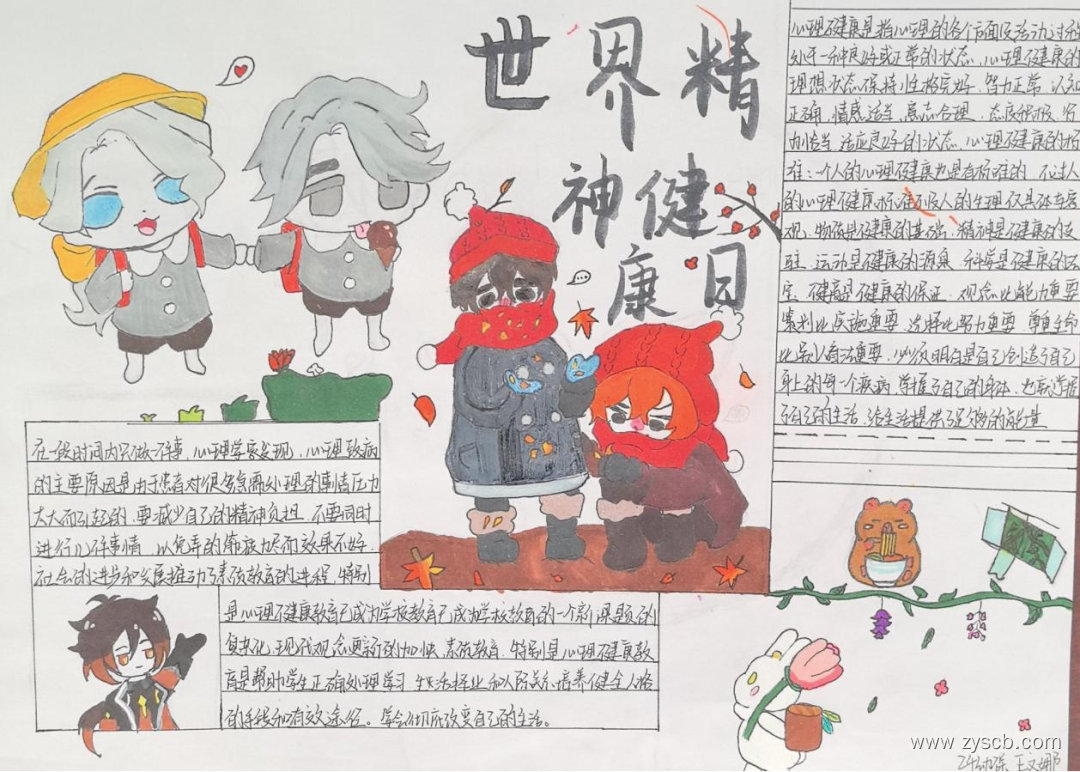 世界精
神健
康日
心理健康是指心理的各个方面及活动过程
处于一种良好或正常的状态。心理健康的
理想状态保持性格完好、智力正常、认知
正确、情感适当、意志合理、态度积极、行
为恰当、适应良好的状态。心理健康的标
准:一个人的心理健康也是有标准的。不过人
的心理健康标准不及人的生理
观。物质是健康的基础,精神是健康的支
柱,运动是健康的源泉,科学是健康的
是健康的保证。观念比能力重要
策划比实施重要,选择比努力重要,尊重生命
比 重要,以及明白是自己创造了自己
身上的每一个疾病,掌握了自己的身体,也就掌握
了自己的生活,给生活提供了足够的能量
在一段时间内只做一件事,心理学家发现,心理致病
的主要原因是由于患者对很多急需处理的事情压力
太大而引起的,要减少自己的精神负担,不要同时
进行几件事情,以免弄的 疲力尽而效果不好。
社会的进步和发展推动了素质教育的进程,特别
是心理健康教育已成为学校教育已成为学校教育的一个新课题
现代观念更新的加快,素质教育,特别是心理健康教
育是帮助学生正确处理学习、生活择业和人际关系,培养健全人格
的手段和有效途径。学会 改变自己的生活。
www.zyscb.com
王文娜